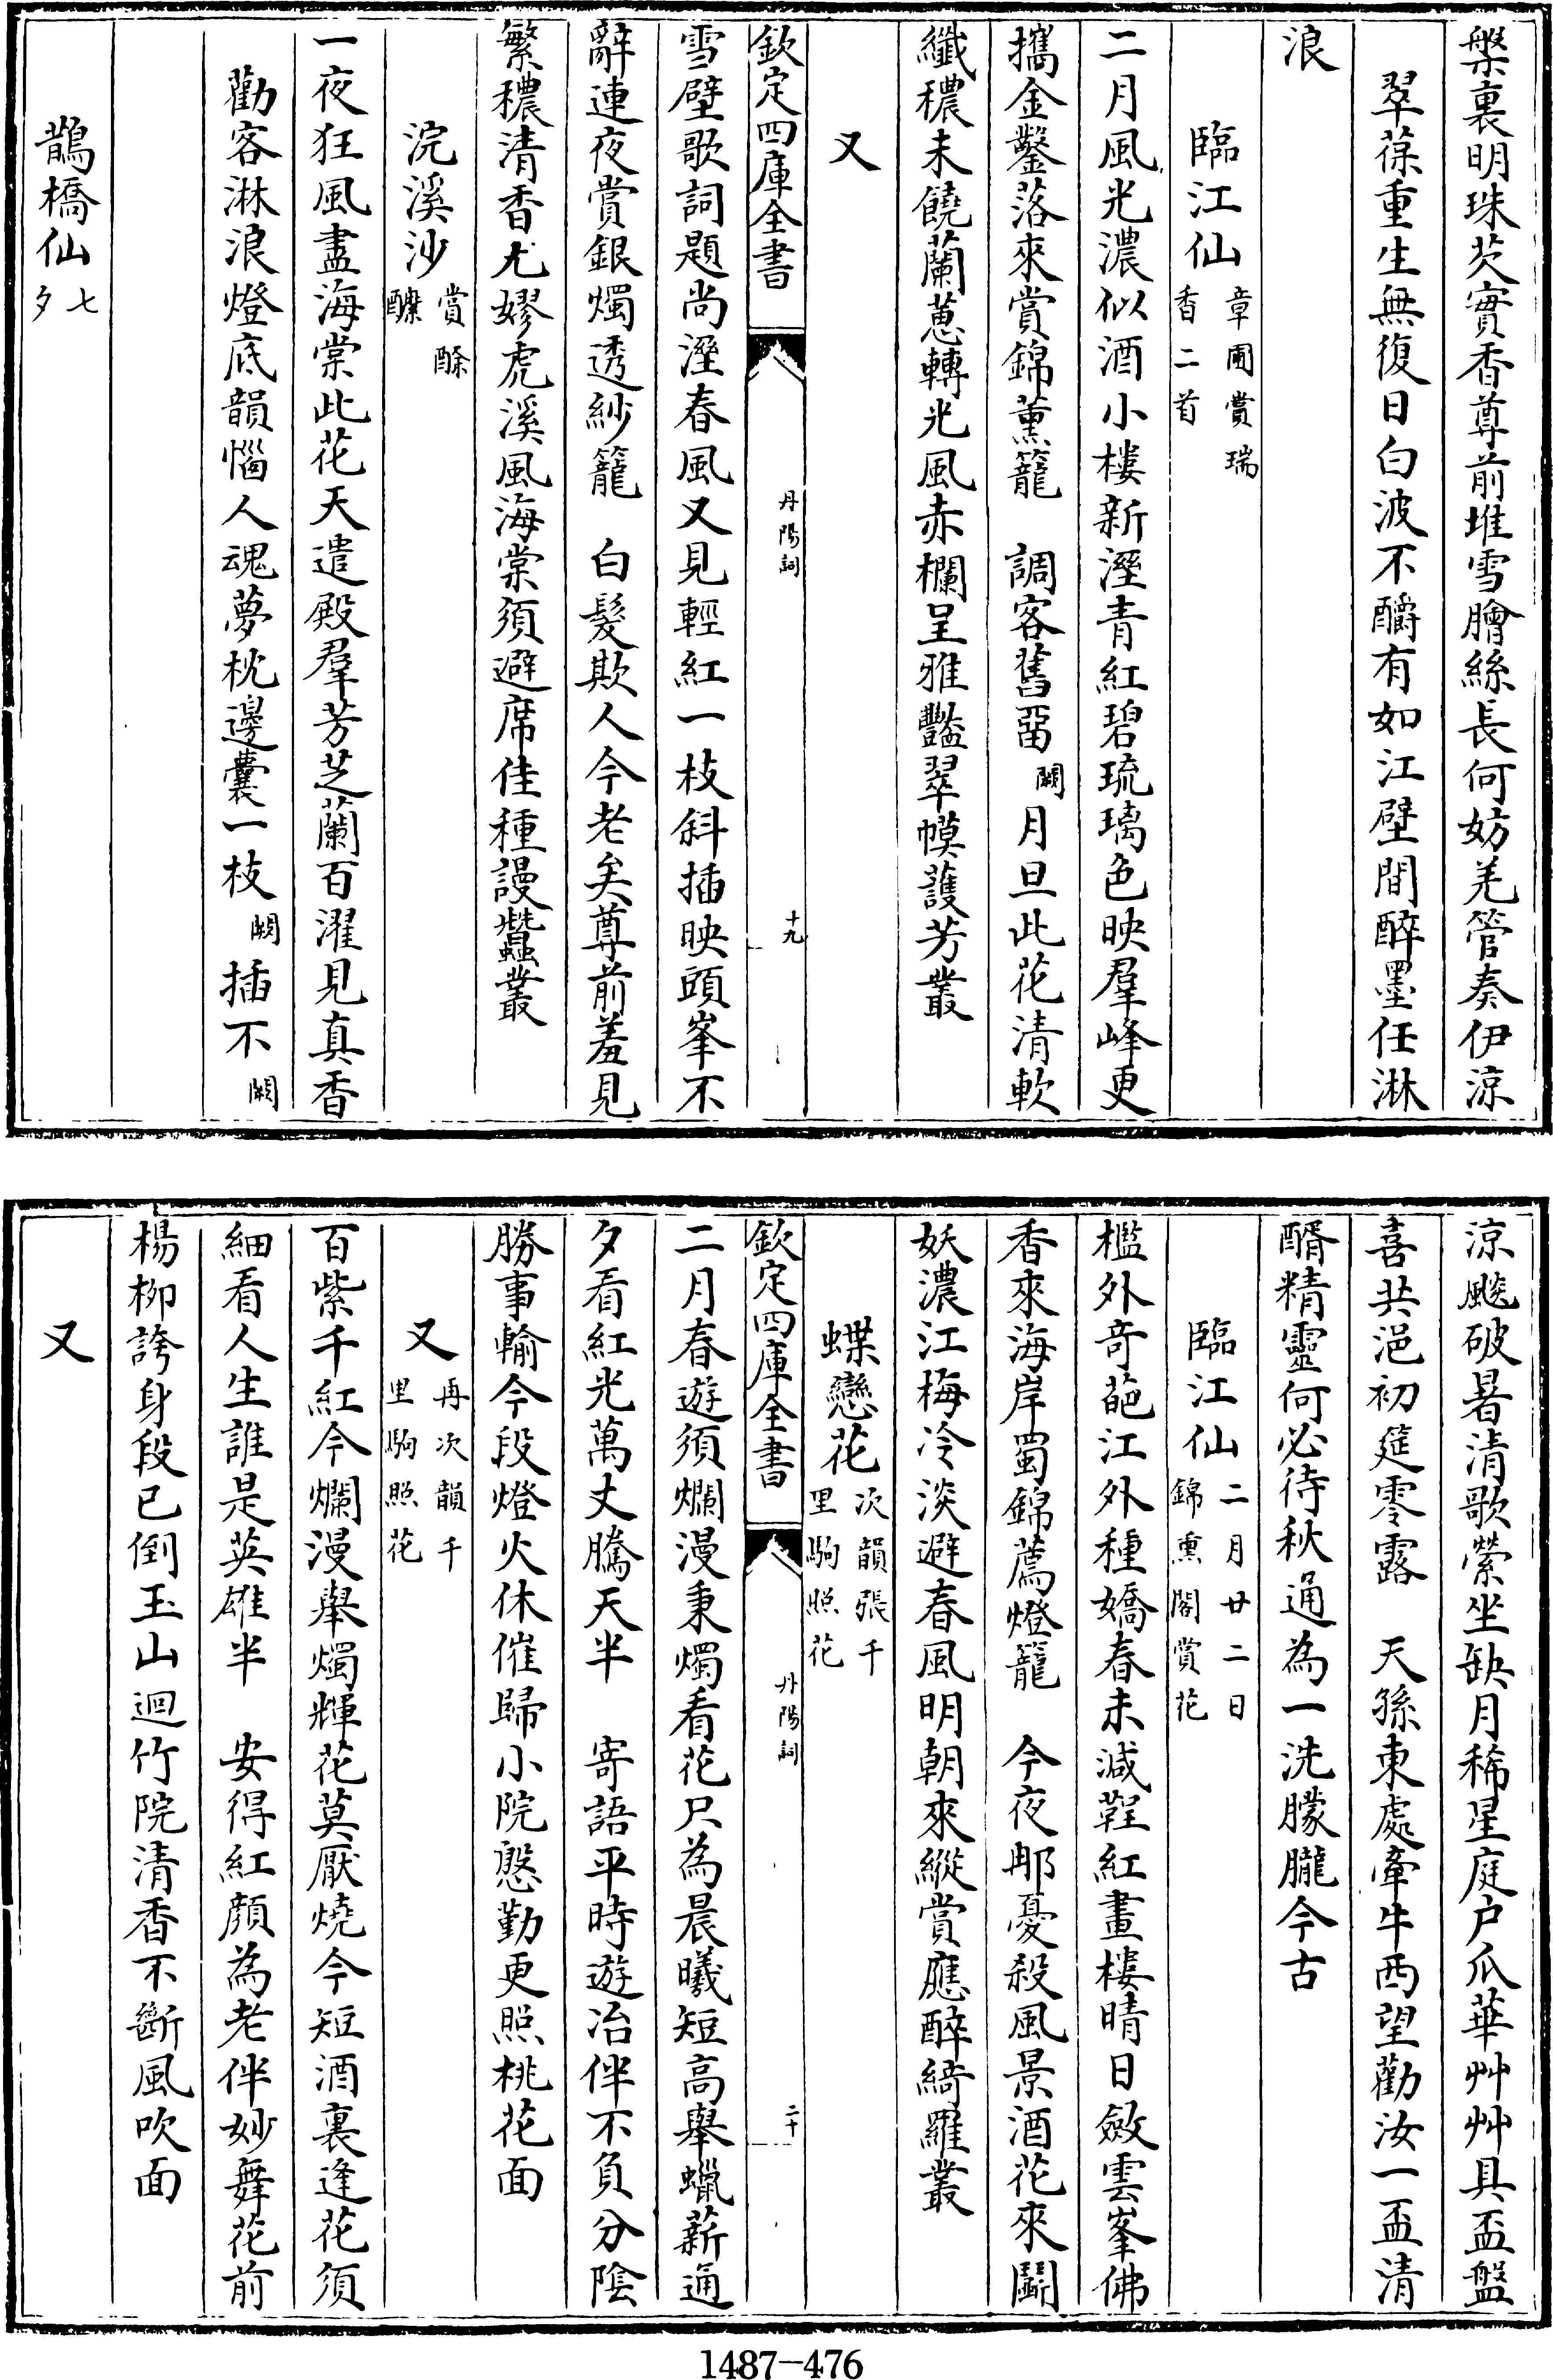 槃裏明珠芡實香尊前堆雪膾絲長何妨羌管奏伊涼
翠葆重生無復日白波不釂有如江壁間醉墨任淋
浪
臨江仙 章圃賞瑞香二首
二月風光濃似酒小樓新溼青紅碧琉璃色映羣峰更
攜金鑿落來賞錦薰籠 調客舊畱闕月旦此花清軟
纖穠未饒蘭蕙轉光風赤欄呈雅豔翠幙䕶芳叢
又
欽定四庫全書 丹陽詞 十九
雪壁歌詞題尚溼春風又見輕紅一枝斜插映頭峯不
辭連夜賞銀燭透紗籠 白髮欺人今老矣尊前羞見
繁穠清香尤嫪虎溪風海棠須避席佳種謾蠶叢
浣溪沙 賞酴醾
一夜狂風盡海棠此花天遣殿羣芳芝蘭百濯見真香
勸客淋浪燈底韻惱人魂夢枕邊囊一枝闕插不闕
鵲橋仙 七夕
涼飈破暑清歌縈坐缺月稀星庭户瓜華艸艸具盃盤
喜共浥初筵零露 天孫東處牽牛西望勸汝一盃清
醑精靈何必待秋通為一洗朦朧今古
臨江仙 二月廿二日錦熏閣賞花
檻外奇葩江外種嬌春未減鞓紅畫樓晴日斂雲峯佛
香來海岸蜀錦薦燈籠 今夜郍憂殺風景酒花來鬭
妖濃江梅冷淡避春風明朝來縱賞應醉綺羅叢
蝶戀花 次韻張千里駒照花
欽定四庫全書 丹陽詞 二十
二月春遊須爛漫秉燭看花只為晨曦短高舉蠟薪通
夕看紅光萬丈騰天半 寄語平時遊冶伴不負分陰
勝事輸今段燈火休催歸小院慇勤更照桃花面
又 再次韻千里駒照花
百紫千紅今爛漫舉燭輝花莫厭燒今短酒裏逢花須
細看人生誰是英雄半 安得紅顏為老伴妙舞花前
楊栁誇身段已倒玉山迴竹院清香不斷風吹面
又
1487-476